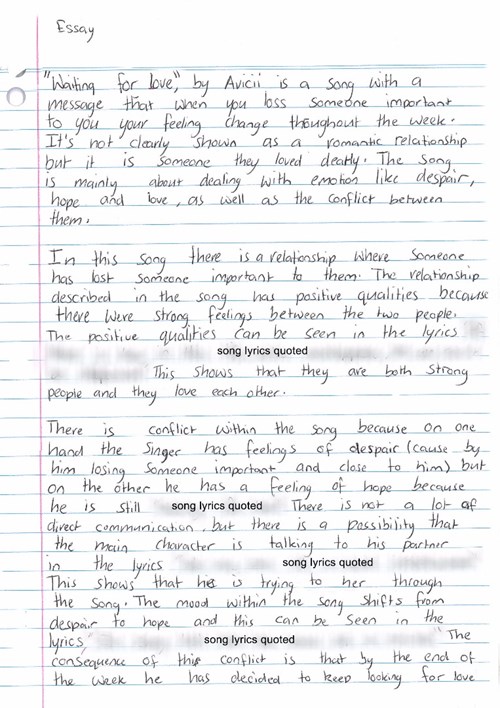 Essay
"Waiting for love", by Avicii is a song with a
message that when you loss someone important
to you your feeling change thoughout the week.
It's not clearly shown as a romantic relationship
but it is someone they loved dearly. The song
is mainly about dealing with emotion like despair,
hope and love, as well as the conflict between
them.
In this song there is a relationship where someone
has lost someone important to them. The relationship
described in the song has positive qualities because
there were strong feelings between the two people.
The positive qualities can be seen in the lyrics
song lyrics quoted
This shows that they are both strong
people and they love each other.
There is conflict within the song because on one
hand the singer has feelings of despair (cause by
him losing someone important and close to him) but
on the other he has a feeling of hope because
he is still song lyrics quoted There is not a lot of
direct communication, but there is a possibility that
the main character is talking to his partner
in the lyrics song lyrics quoted
This shows that he is trying to her through
the song. The mood within the song shifts from
despair to hope and this can be seen in the
lyrics" song lyrics quoted " The
consequence of this conflict is that by the end of
the week he has decided to keep looking for love